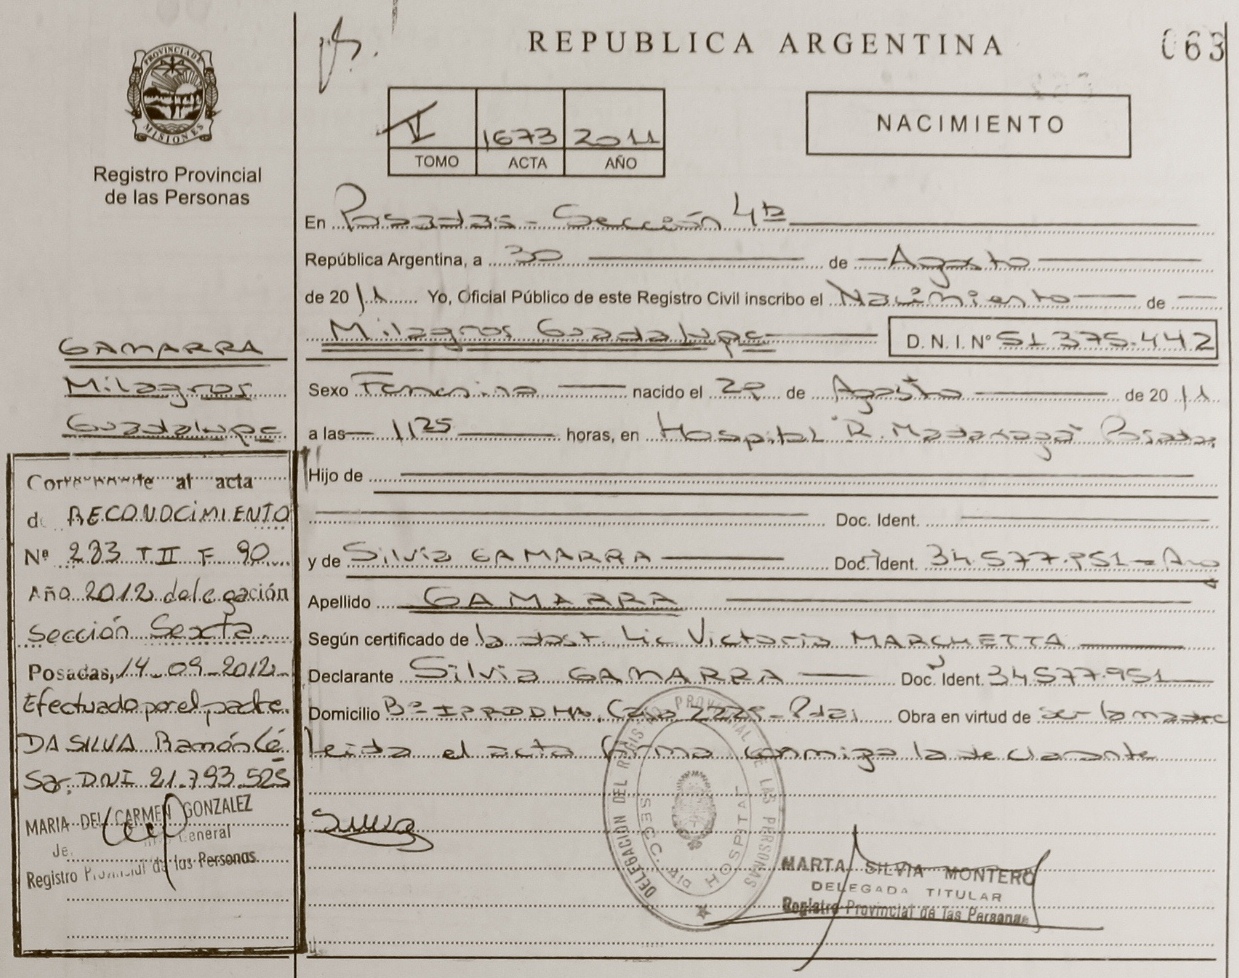 REPUBLICA ARGENTINA
063
PROVINCIA DE
MISIONES
Registro Provincial
de las Personas
V 1673 2011
TOMO ACTA AÑO
NACIMIENTO
En Posadas - Sección 4ta
República Argentina, a 30 de Agosto
de 2011 Yo, Oficial Público de este Registro Civil inscribo el Nacimiento de
Milagros Guadalupe D. N. I. Nº 51.375.442
Sexo Femenino nacido el de Agosto de 2011
a las 1125 horas, en Hospital "R. Madariaga" Posadas
Hijo de
Doc. Ident.
y de Silvia GAMARRA Doc. Ident. 34.577.951
Apellido GAMARRA
Según certificado de la Lic Victoria MARCHETTA
Declarante Silvia GAMARRA Doc. Ident. 34.577.951
Domicilio Bº IPRODHA, Casa 2225 - Pdas Obra en virtud de ser la madre
Leida el acta firma conmigo la declarante
GAMARRA
Milagros
Guadalupe
al acta
de RECONOCIMIENTO
Nº 283 T II F 90
Año 2012 delegación
Sección Sexta
Posadas, 14-09-2012
Efectuado por el padre
DA SILVA Ramón
DNI 21.793.525
MARIA DEL CARMEN GONZALEZ
General
Registro Provincial de las Personas
Silvia
DELEGACIÓN DEL REGISTRO PROVINCIAL DE LAS PERSONAS
SECC. 4ta HOSPITAL
MARTA SILVIA MONTERO
DELEGADA TITULAR
Registro Provincial de las Personas